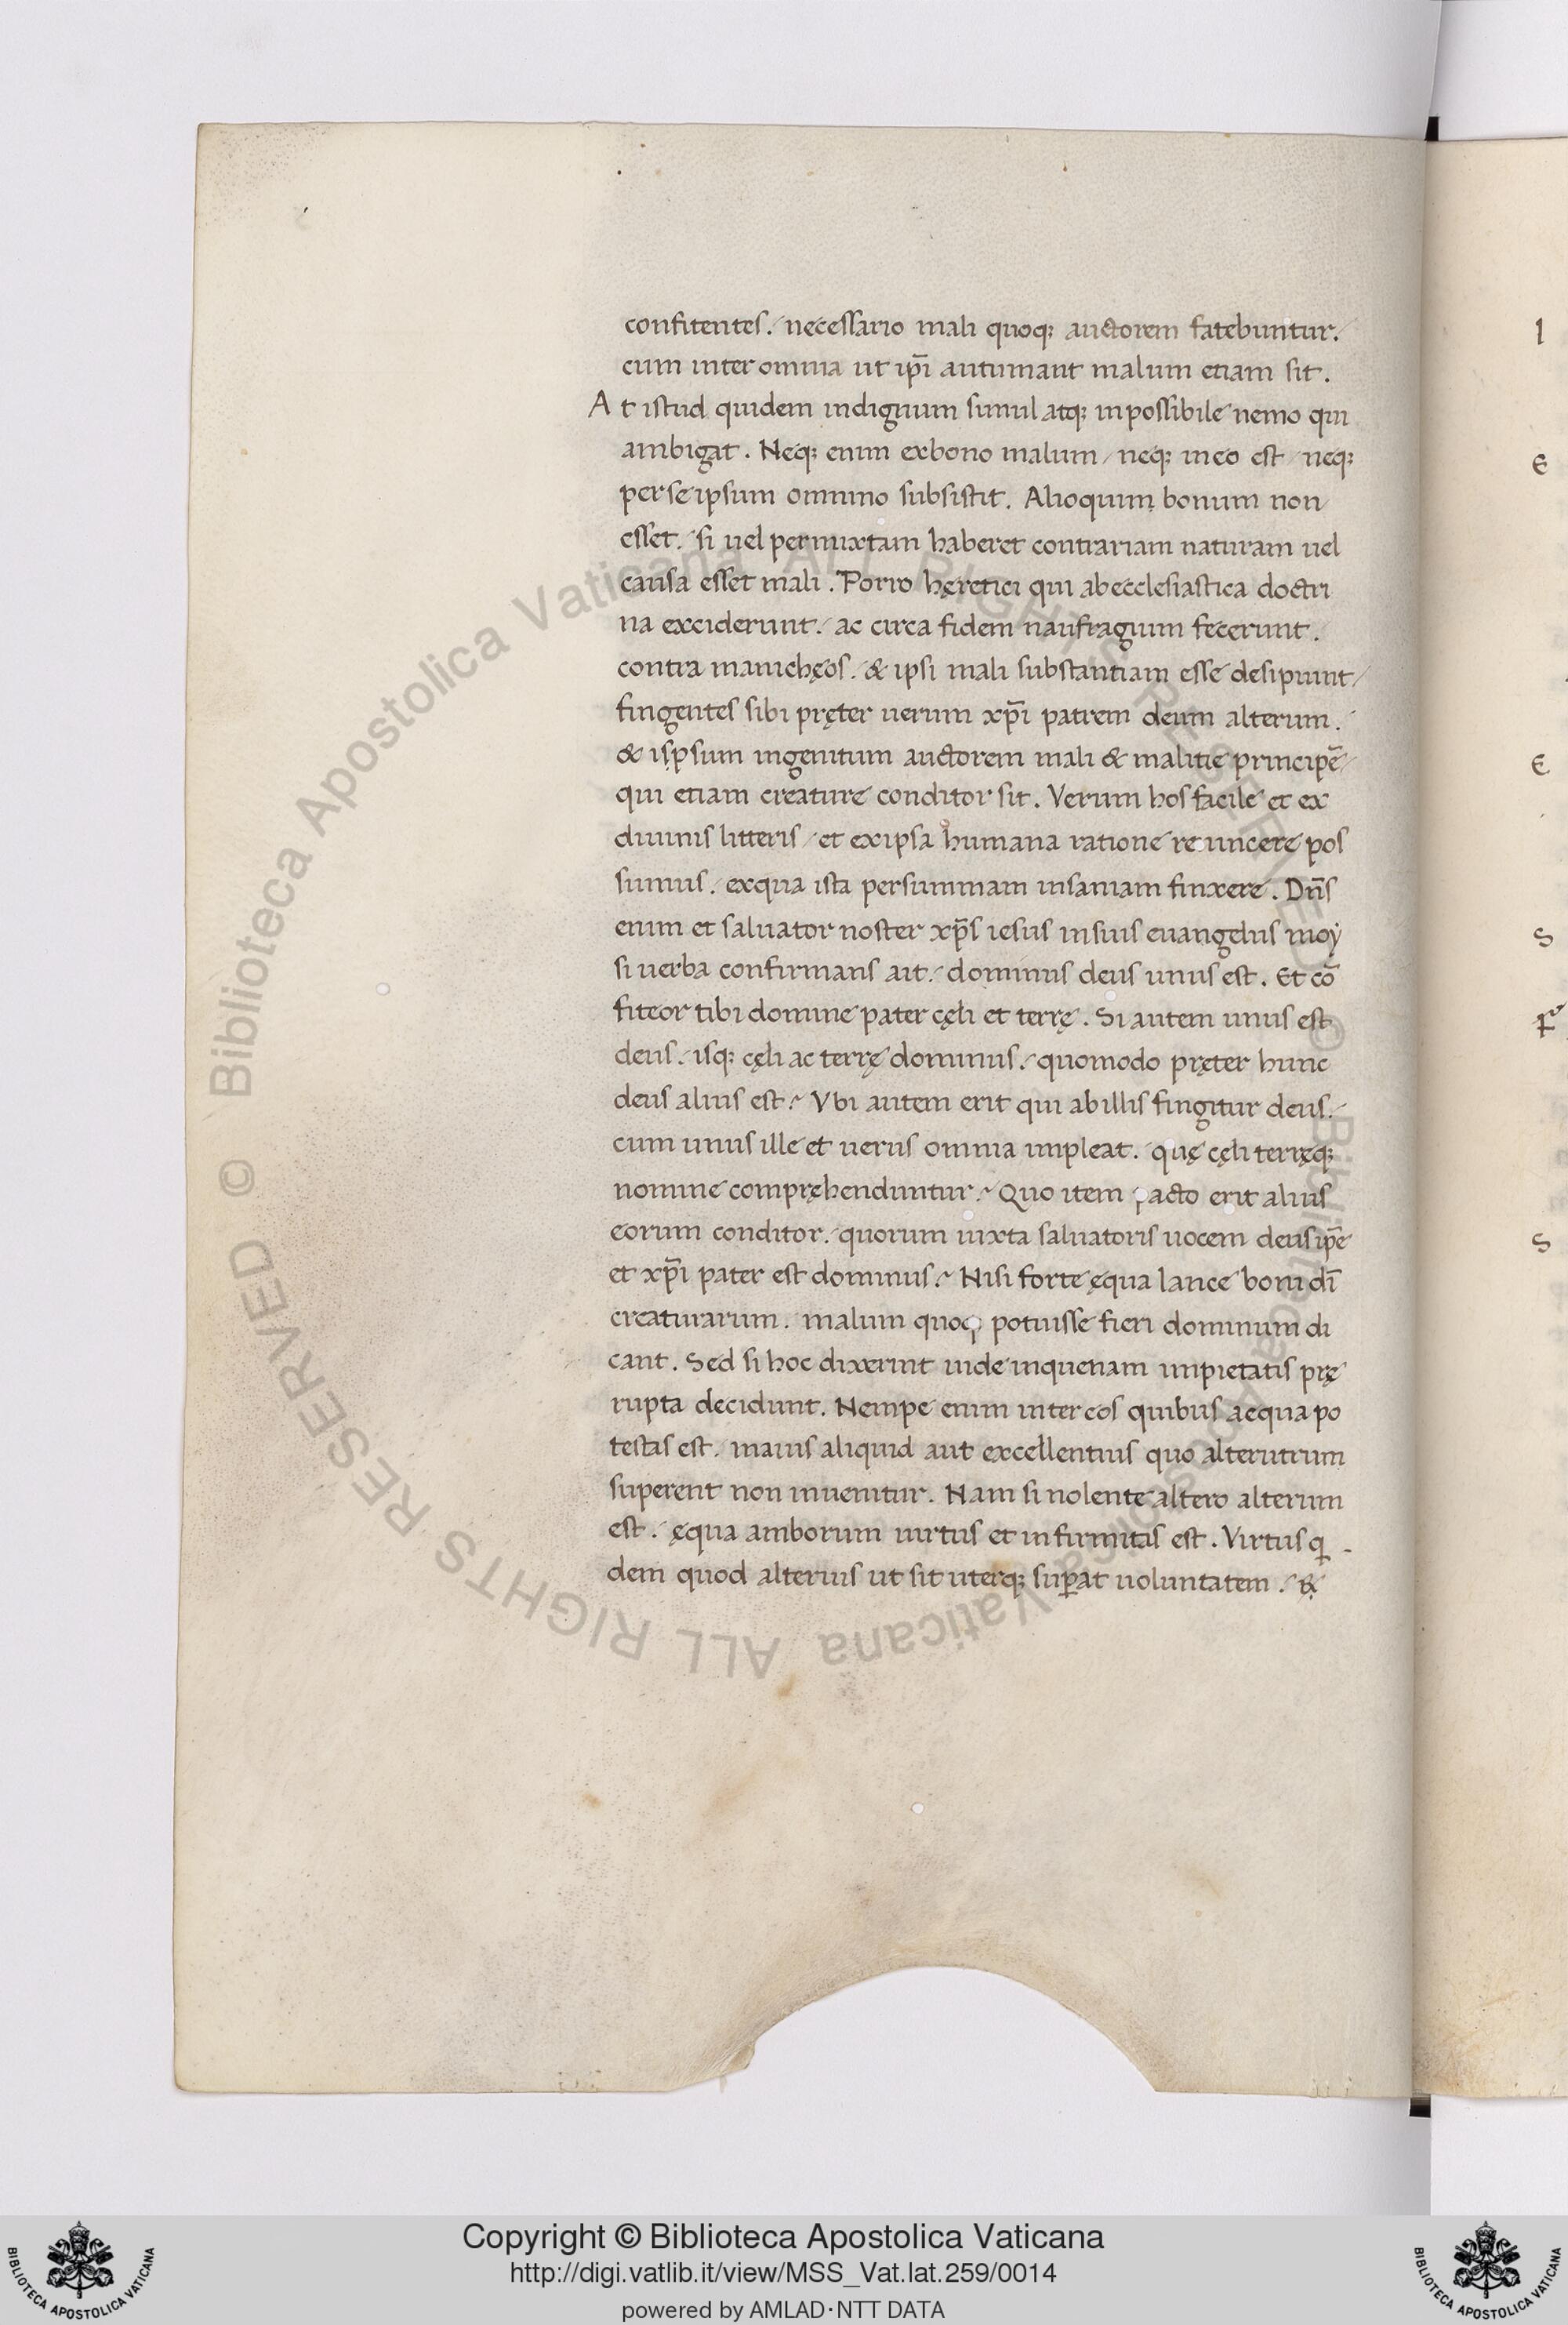 confitentes. necessario mali quoq; auctorem fatebuntur.
cum inter omnia ut ip̄i autumant malum etiam sit.
At istud quidem indignum simul atq; inpossibile nemo qui
ambigat. Neq; enim exbono malum / neq; ineo est / neq;
per se ipsum omnino subsistit. Alioquin bonum non
esset. si uel permixtam haberet contrariam naturam uel
causa esset mali. Porro hęretici qui abecclesiastica doctri
na exciderunt. ac circa fidem naufragium fecerunt.
contra manichęos. & ipsi mali substantiam esse desipiunt /
fingentes sibi pręter uerum xp̄i patrem deum alterum.
& ispsum ingenitum auctorem mali & malitie principē
qui etiam creature conditor sit. Verum hos facile et ex
diuinis litteris / et exipsa humana ratione reuincere pos
sumus. exqua ista persummam insaniam finxere. Dn̄s
enim et saluator noster xp̄s iesus insuis euangeliis moẏ
si uerba confirmans ait. dominus deus unus est. Et cō
fiteor tibi domine pater cęli et terrę. Si autem unus est
deus. isq; cęli ac terrę dominus. quomodo pręter hunc
deus alius est? Vbi autem erit qui abillis fingitur deus.
cum unus ille et uerus omnia impleat. quę cęli terręq;
nomine compręhenduntur? Quo item pacto erit alius
eorum conditor. quorum iuxta saluatoris uocem deus ip̄e
et xp̄i pater est dominus? Nisi forte ęqua lance boni dī
creaturarum. malum quoq; potuisse fieri dominum di
cant. Sed si hoc dixerint uide inquenam impietatis prę
rupta decidunt. Nempe enim inter eos quibus aequa po
testas est. maius aliquid aut excellentius quo alterutrum
superent non inuenitur. Nam si nolente altero alterum
est. ęqua amborum uirtus et infirmitas est. Virtus q̢
dem quod alterius ut sit uterq; sup̱at uoluntatem. &
l
e
e
s
s
© Biblioteca Apostolica Vaticana ALL RIGHTS RESERVED © Biblioteca Apostolica Vaticana ALL RIGHTS RESERVED
Copyright © Biblioteca Apostolica Vaticana
http://digi.vatlib.it/view/MSS_Vat.lat.259/0014
powered by AMLAD·NTT DATA
BIBLIOTECA APOSTOLICA VATICANA
BIBLIOTECA APOSTOLICA VATICANA